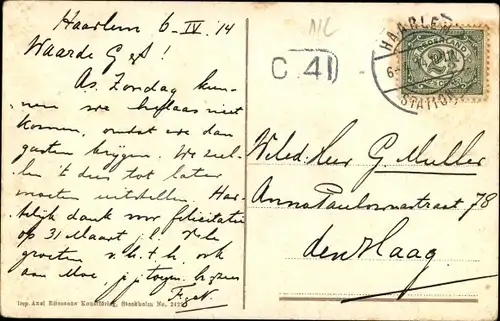 Haarlem 6-IV.'14
Waarde G!
As. Zondag kun-
nen we helaas niet
komen, omdat we dan
gasten krijgen. We zul-
len 't dus tot later
moeten uitstellen. Har-
telijk dank voor felicitatie
op 31 Maart
groeten v.h.t.h. ook
aan Moe,
F. N.
Imp. Axel Eliassons Konstförlag, Stockholm No.
C 41
HAARLEM
STATION
NEDERLAND
2½
Weled. Heer G. Muller
Anna Paulownastraat 78
den Haag